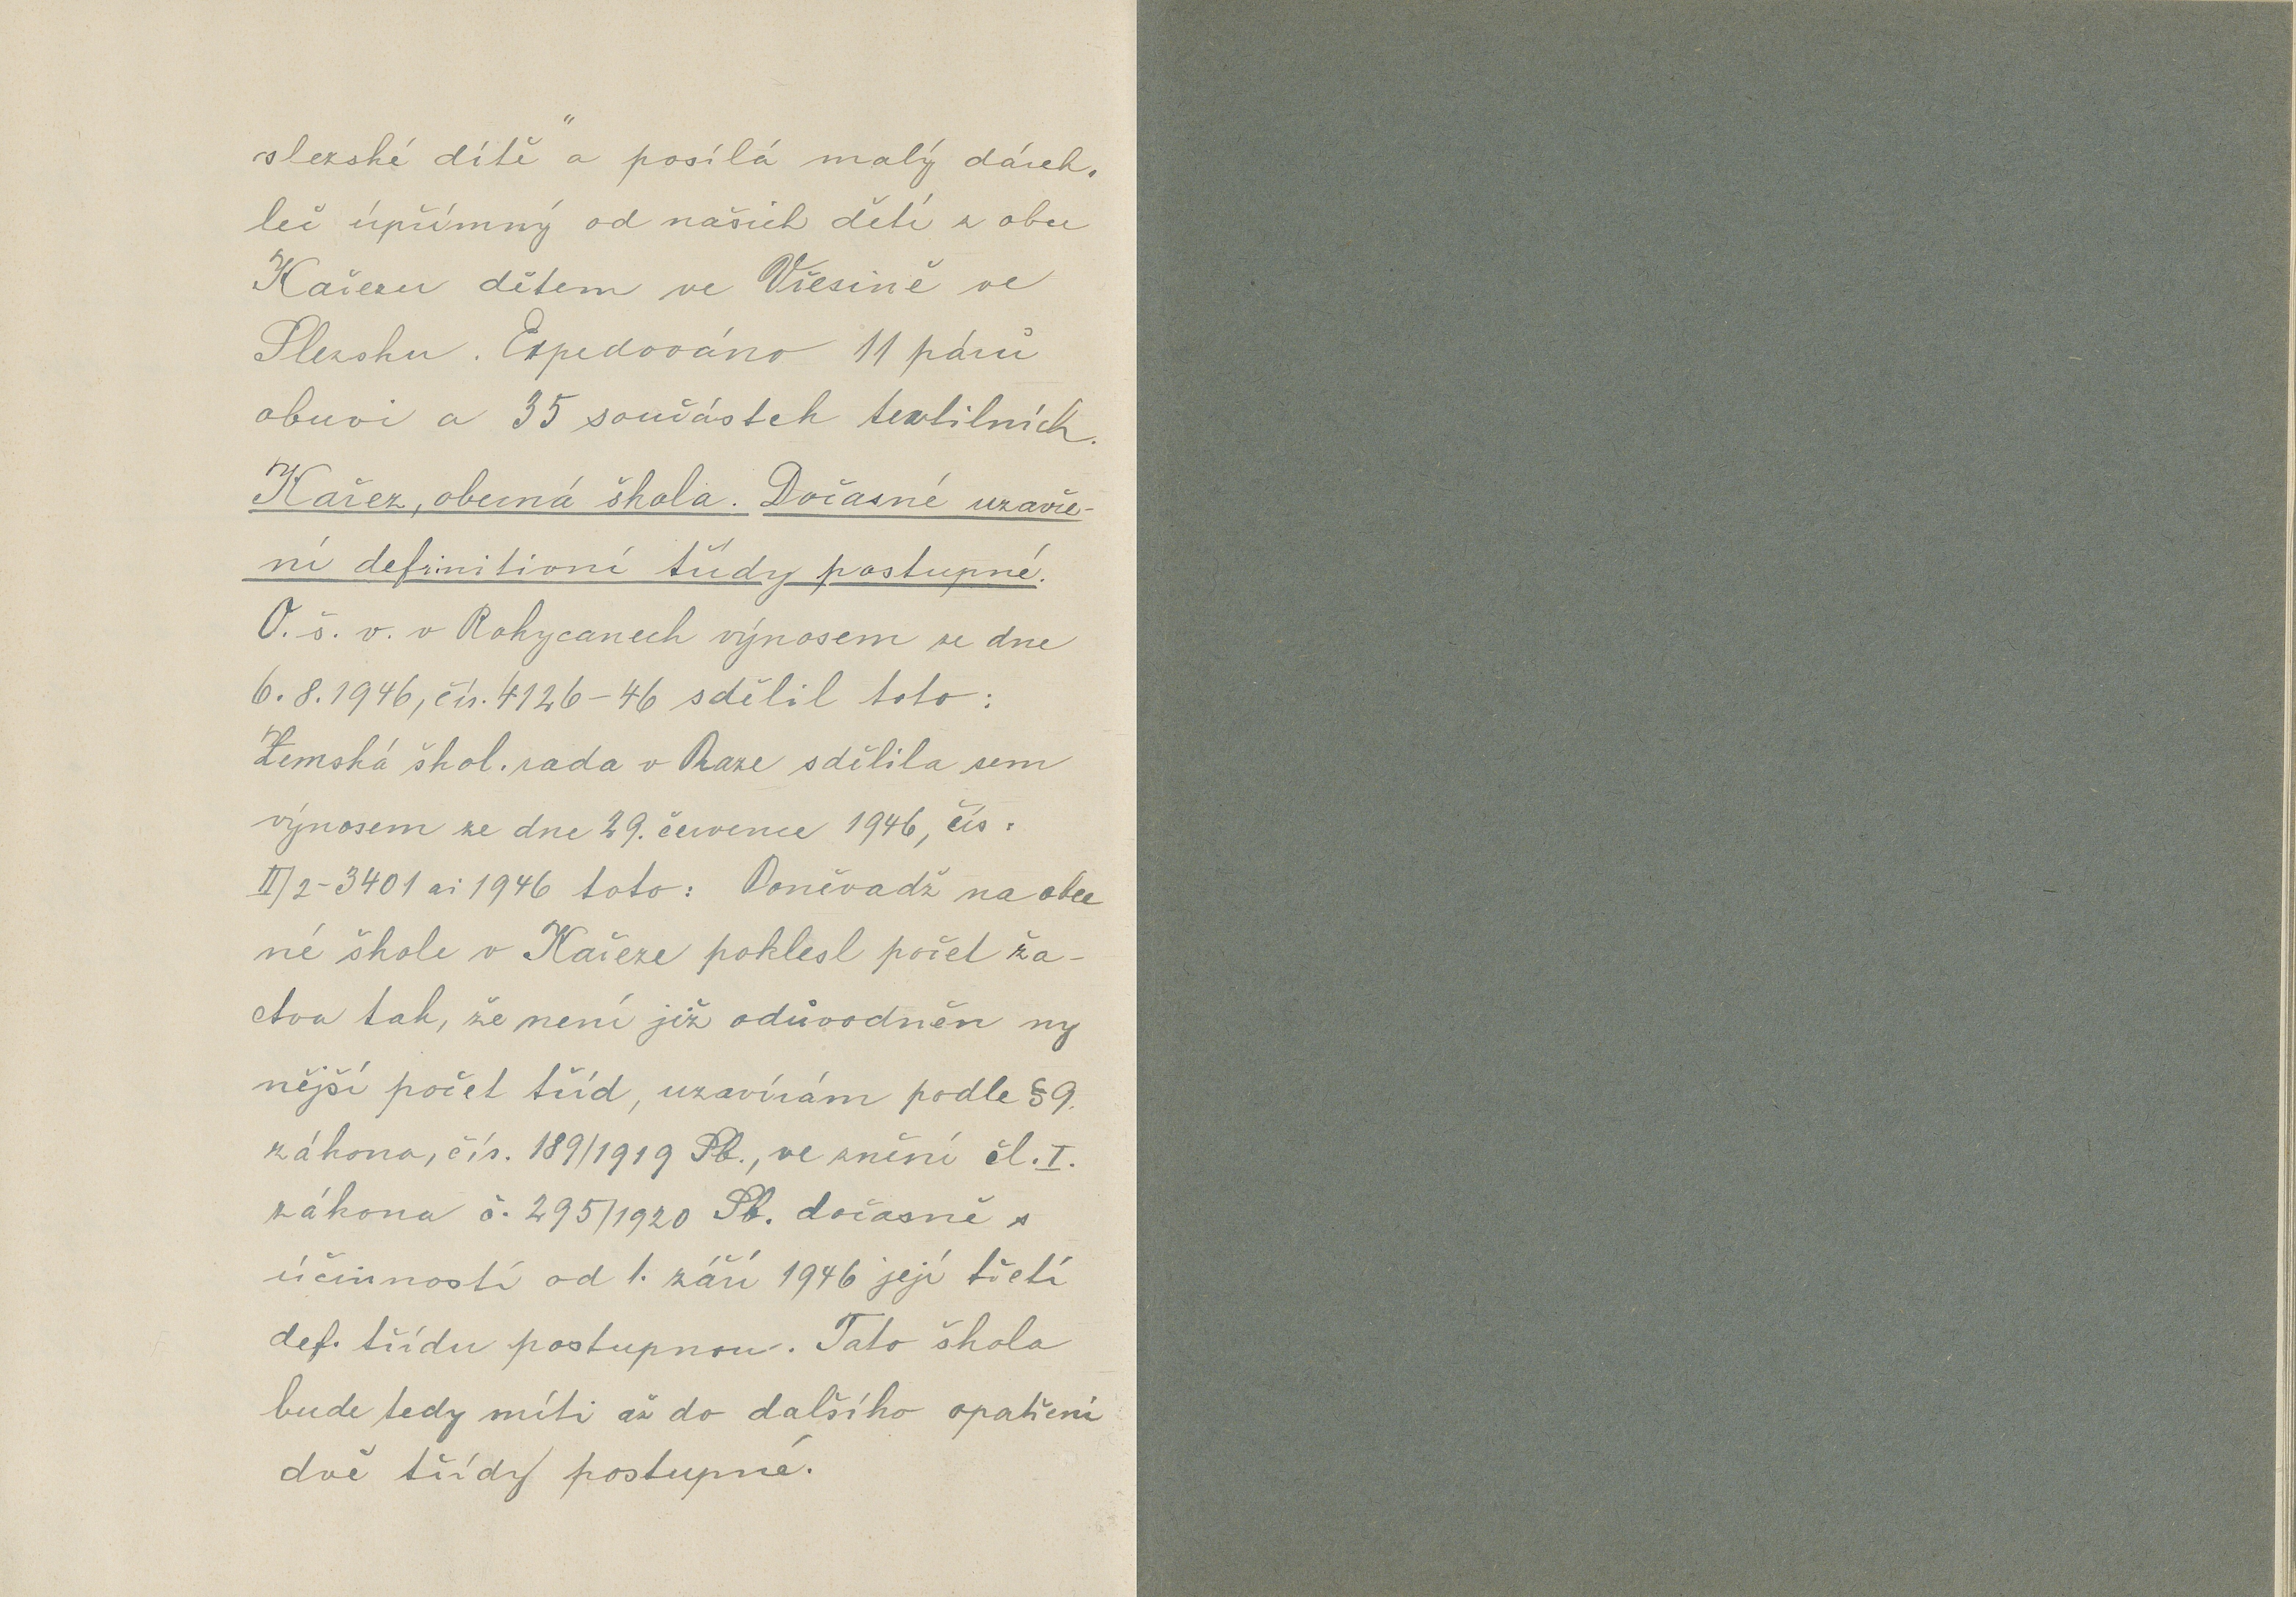 slezské dítě" a posílá malý dárek,
leč úpřímný od našich dětí z obce
Kařezu dětem ve Vřesině ve
Slezsku. Expedováno 11 párů
obuvi a 35 součástek textilních.
Kařez, obecná škola. Dočasné uzavře-
ní definitivní třídy postupné.
O. š. v. v Rokycanech výnosem ze dne
6. 8. 1946, čís. 4126-46 sdělil toto:
Zemská škol. rada v Praze sdělila sem
výnosem ze dne 29. července 1946, čís.
II/2-3401 ai 1946 toto: Poněvadž na obec
né škole v Kařeze poklesl počet žá-
ctva tak, že není již odůvodněn ny
nější počet tříd, uzavírám podle §9.
zákona, čís. 189/1919 Sb., ve znění čl. I.
zákona č. 295/1920 Sb. dočasně s
účinností od 1. září 1946 její třetí
def. třídu postupnou. Tato škola
bude tedy míti až do dalšího opatření
dvě třídy postupné.